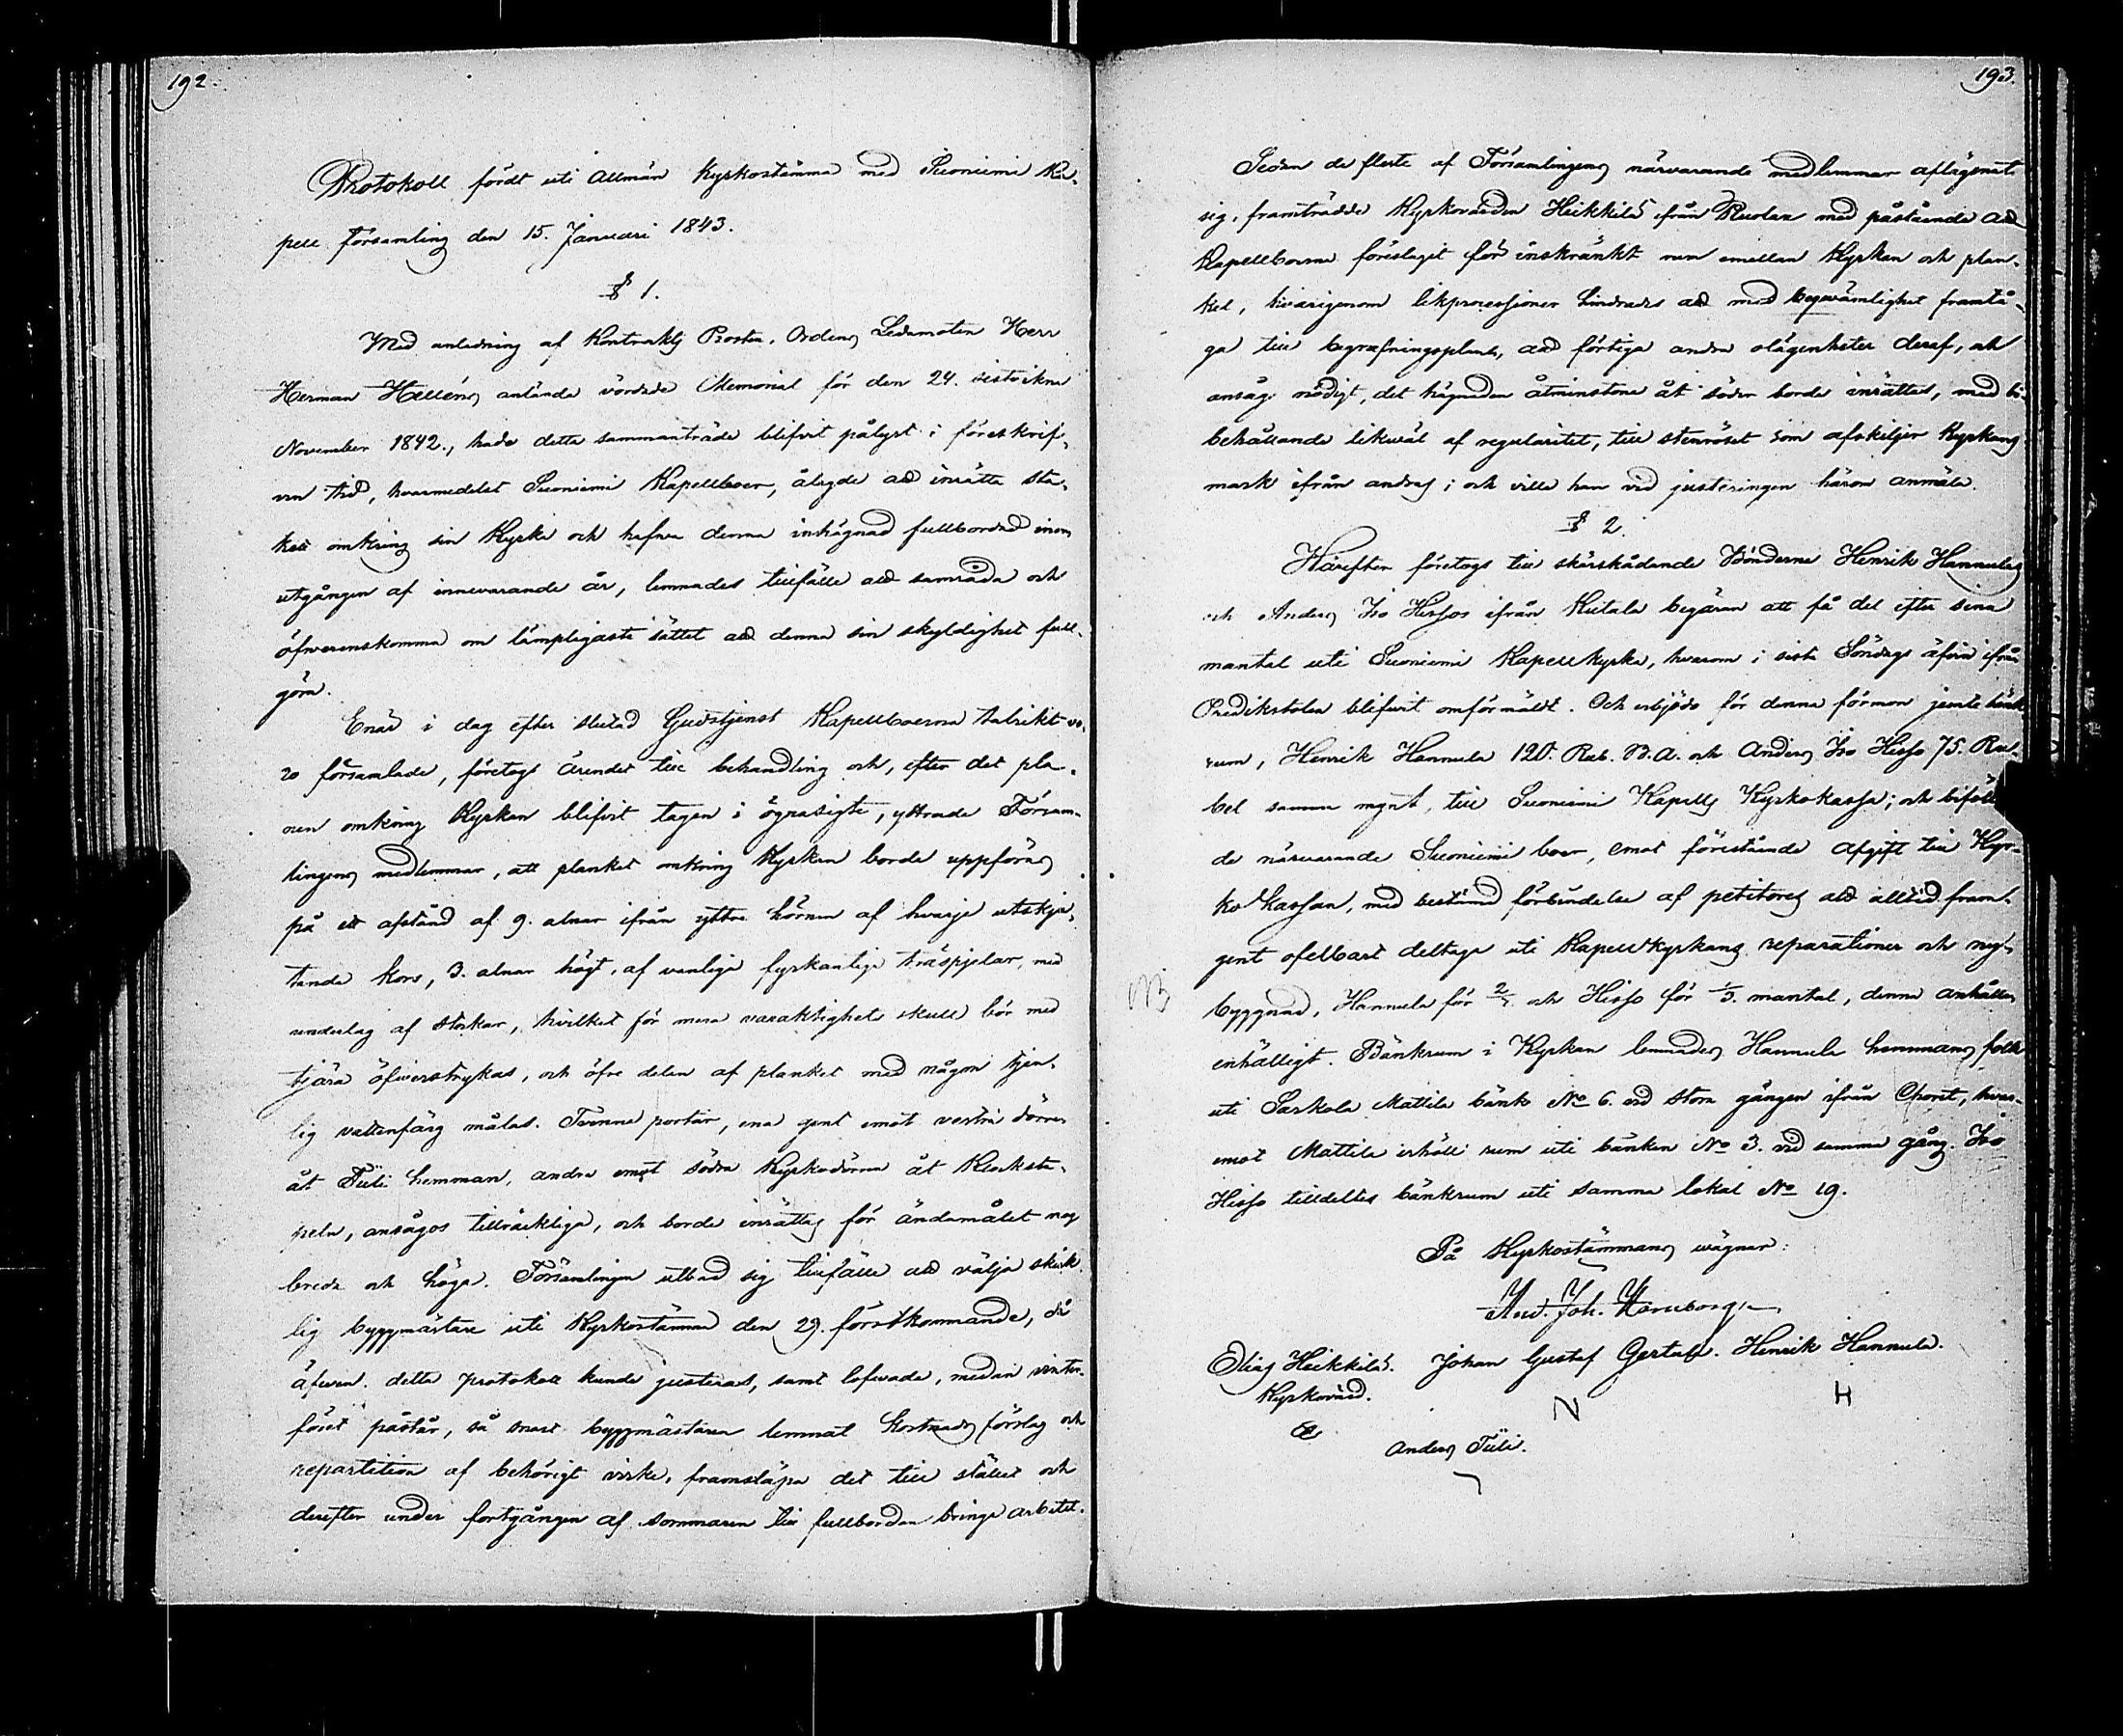 192.
Protokoll fördt uti Allmän Kyrkostämma med Suoniemi Ka-
pell församling den 15. Januari 1843.
§ 1.
Med anledning af Kontrakts Prosten, Ordens Ledamoten Herr
Herman Helléns anlända vördade Memorial för den 24. sistvikne
November 1842., hade detta sammanträde blifvit pålyst i föreskrif-
ven tid, hvarmedelst Suoniemi Kapellboer, ålagde att inrätta sta-
kett omkring sin Kyrka och hafva denna inhägnad fullbordad inom
utgången af innevarande år, lemnades tillfälle att samråda och
öfverenskomma om lämpligaste sättet att denna sin skyldighet full-
göra.
Enär i dag efter slutad Gudstjenst Kapellboerna talrikt vo-
ro församlade, företogs ärendet till behandling och, efter det pla-
nen omkring Kyrkan blifvit tagen i ögnasigte, yttrade Försam-
lingens medlemmar, att planket omkring Kyrkan borde uppföras
på ett afstånd af 9. alnar ifrån yttre hörnen af hvarje utskju-
tande kors, 3. alnar högt, af vanliga fyrkantiga träspjelar, med
underlag af stockar, hvilket för mera varaktighets skull bör med
tjära öfverstrykas, och öfre delen af planket med någon tjen-
lig vattenfärg målas. Tvenne portar, ena gent emot vestra dörren
åt Tüli hemman, andra emot södra Kyrkodörren åt Klocksta-
peln, ansågos tillräckliga, och borde inrättas för ändamålet nog
breda och höga. Församlingen utbad sig tillfälle att välja skick-
lig byggmästare uti Kyrkostämma den 29. förstkommande, då
äfven detta protokoll kunde justeras, samt lofvade, medan vinter-
föret påstår, så snart byggmästaren lemnat kostnads förslag och
repartition af behörigt virke, framsläpa det till stället och
derefter under fortgången af sommaren till fullbordan bringa arbetet.
193.
Sedan de fleste af Församlingens närvarande medlemmar aflägsnat
sig, framträdde Kyrkovärden Heikkilä ifrån Kuolan med påstående att
Kapellboerna föreslagit för inskränkt rum emellan Kyrkan och plan-
ket, hvarigenom likprocessioner hindrades att med beqvämlighet framtå-
ga till begrafningsplats, att förtiga andra olägenheter deraf, och
ansåg nödigt, det hägnaden åtminstone åt söder borde inrättas, med bi-
behållande likväl af regularitet, till stenröset som afskiljer Kyrkans
mark ifrån andras; och ville han vid justeringen härom anmäla.
§ 2.
Härefter företogs till skärskådande Bönderne Henrik Hannulas
och Anders Iso Hissos ifrån Kutala begäran att få del efter sina
mantal uti Suoniemi Kapellkyrka, hvarom i sista Söndags äfven ifrån
Predikstolen blifvit omförmäldt. Och erbjödo för denna förmon jemte bänk
rum, Henrik Hannula 120. Rub. B.A. och Anders Iso Hisso 75. Ru-
bel samma mynt, till Suoniemi Kapells Kyrkokassa; och biföllo
de närvarande Suoniemi boer, emot förestående afgift till Kyr-
ko Kassan, med bestämd förbindelse af petitores att alltid fram-
gent ofelbart deltaga uti Kapellkyrkans reparationer och ny-
NB
byggnad, Hannula för 2/3. och Hisso för 1/3. mantal, denna anhållan
enhälligt. Bänkrum i Kyrkan lemnades Hannula hemmans folk
uti Sarkola Mattila bänk No 6. vid stora gången ifrån Choret, hvar-
emot Mattila erhöll rum uti bänken No 3. vid samma gång. Iso
Hisso tilldeltes bänkrum uti samma lokal No 19.
På Kyrkostämmans vägnar:
And. Joh. Kornborg
Elias Heikkilä. Johan Gustaf Gertali. Henrik Hannula.
Kyrkovärd.
N
H
Anders Tüli.